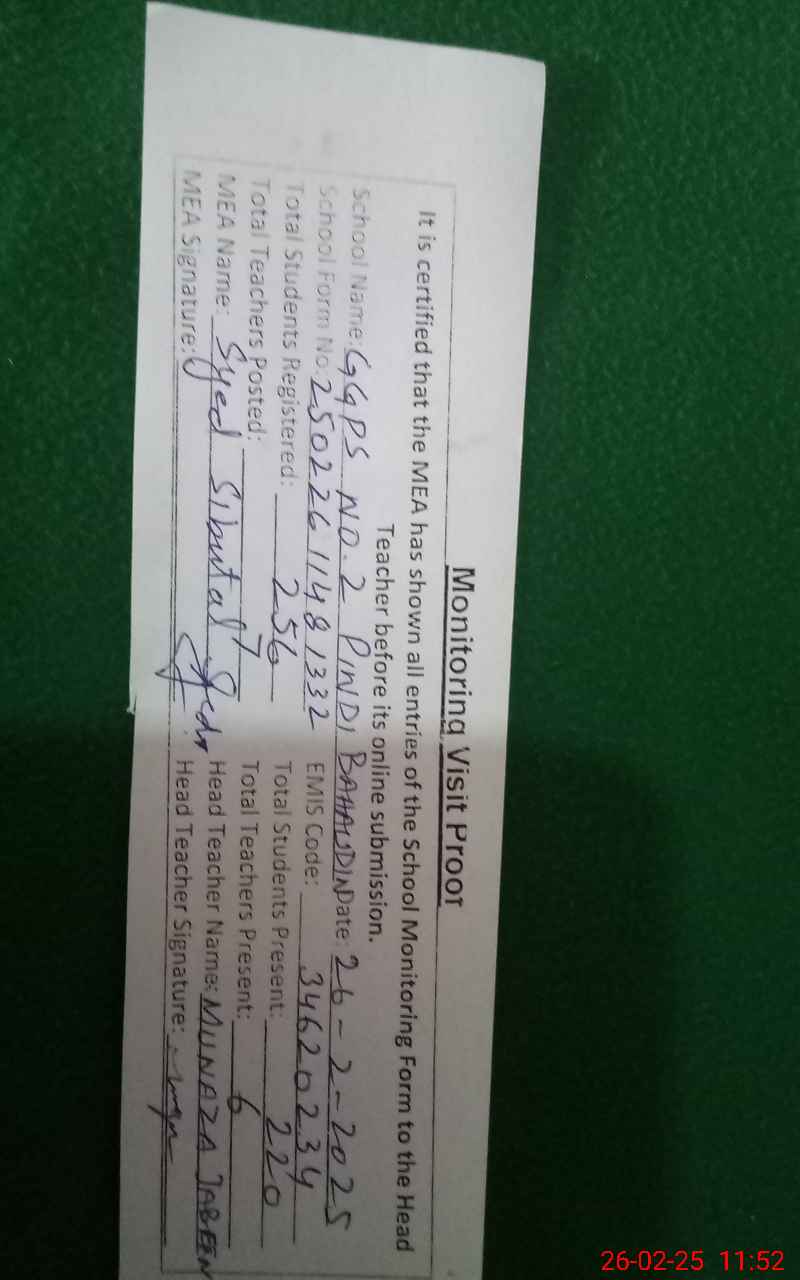 Monitoring Visit Proof
It is certified that the MEA has shown all entries of the School Monitoring Form to the Head
Teacher before its online submission.
School Name: GGPS NO.2 PINDI BAHAUDIN Date: 26-2-2025
School Form No: 25022611481332 EMIS Code: 34620234
Total Students Registered: 256 Total Students Present: 220
Total Teachers Posted: 7 Total Teachers Present: 6
MEA Name: Syed Sibutal Head Teacher Name: MUNAZA JABEEN
MEA Signature: Head Teacher Signature:
26-02-25 11:52